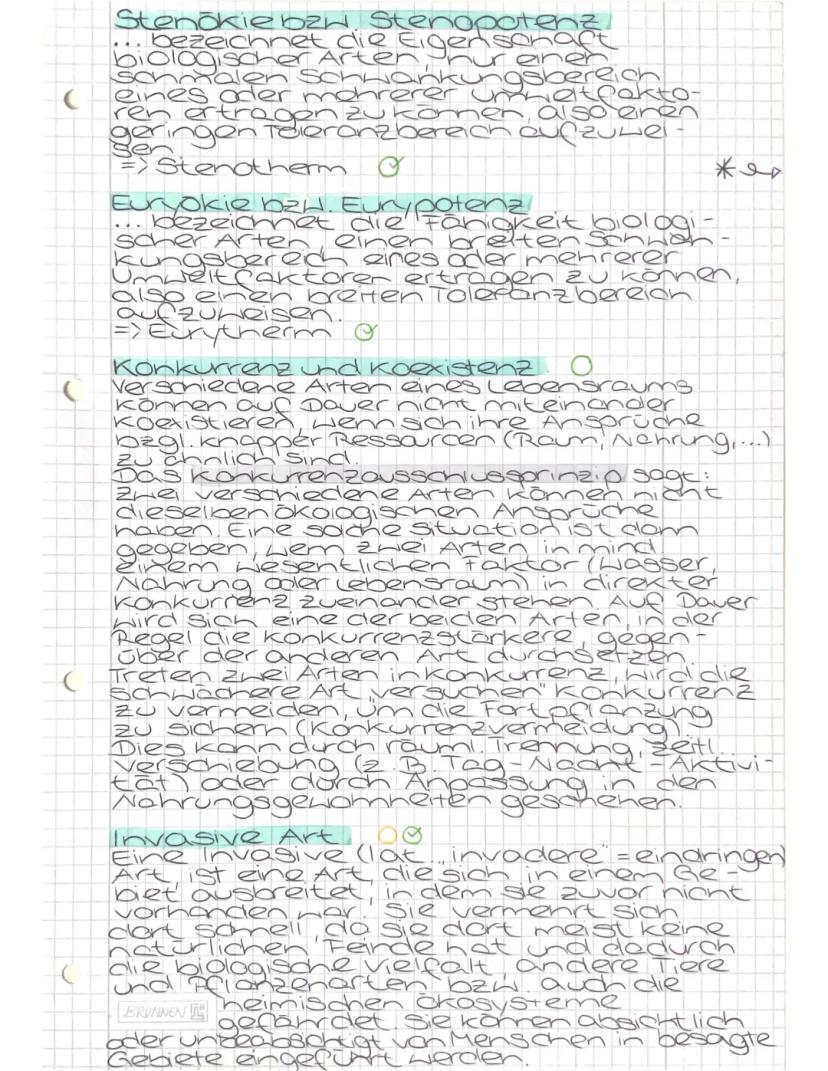 Stenökie bzw Stenopotenz
... bezeichnet die Eigenschaft
biologischer Arten, nur einen
schmalen Schwankungsbereich
eines oder mehrerer Umweltfakto-
ren ertragen zu können, also einen
geringen Toleranzbereich aufzuwei-
sen
=> Stenotherm
*
Euryökie bzw. Eurypotenz
... bezeichnet die Fähigkeit biologi-
scher Arten, einen breiten Schwan-
kungsbereich eines oder mehrerer
Umweltfaktoren ertragen zu können,
also einen breiten Toleranzbereich
aufzuweisen.
=> Eurytherm
Konkurrenz und Koexistenz
Verschiedene Arten eines Lebensraums
können auf Dauer nicht miteinander
koexistieren, wenn sich ihre Ansprüche
bzgl. knapper Ressourcen (Raum, Nahrung,...)
zu ähnlich sind.
Das Konkurrenzausschlussprinzip sagt:
Zwei verschiedene Arten können nicht
dieselben ökologischen Ansprüche
haben. Eine solche Situation ist dann
gegeben, wenn zwei Arten in mind.
einem wesentlichen Faktor (Wasser,
Nahrung oder Lebensraum) in direkter
Konkurrenz zueinander stehen. Auf Dauer
wird sich eine der beiden Arten, in der
Regel die konkurrenzstärkere, gegen-
über der anderen Art durchsetzen.
Treten zwei Arten in Konkurrenz, wird die
schwächere Art „versuchen" Konkurrenz
zu vermeiden, um die Fortpflanzung
zu sichern (Konkurrenzvermeidung).
Dies kann durch räuml. Trennung, zeitl.
Verschiebung (z. B. Tag-Nacht-Aktivi-
tät) oder durch Anpassung in den
Nahrungsgewohnheiten geschehen.
Invasive Art
Eine Invasive (lat. „invadere" = eindringen)
Art ist eine Art, die sich in einem Ge-
biet ausbreitet, in dem sie zuvor nicht
vorhanden war. Sie vermehrt sich
dort schnell, da sie dort meist keine
natürlichen Feinde hat und dadurch
die biologische Vielfalt, andere Tiere
und Pflanzenarten bzw. auch die
heimischen Ökosysteme
BRUNNEN
gefährdet. Sie können absichtlich
oder unbeabsichtigt von Menschen in besagte
Gebiete eingeführt werden.